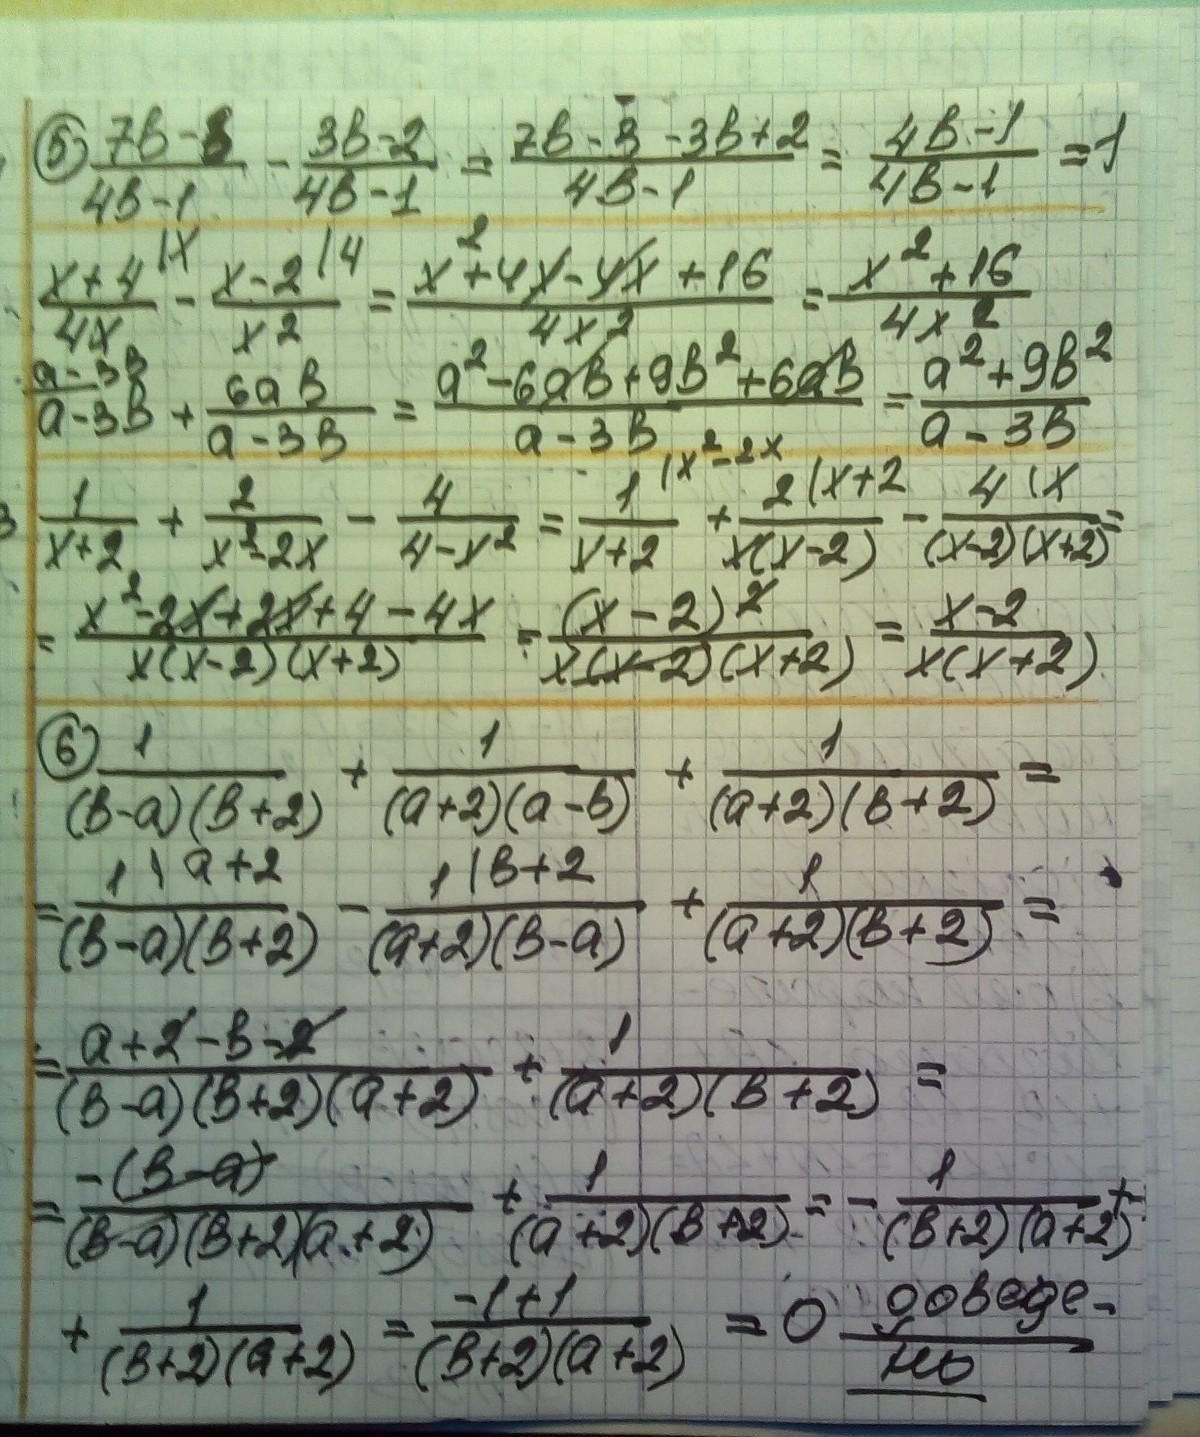 5) (7в-3)/(4в-1) - (3в-2)/(4в-1) = (7в-3-3в+2)/(4в-1) = (4в-1)/(4в-1) = 1
(x+4)/(4x) |x - (x-2)/(x2) |4 = (x²+4x-4x+16)/(4x2) = (x²+16)/(4x2)
(a-3в)/(a-3в) + (6aв)/(a-3в) = (a²-6aв+9в²+6aв)/(a-3в) = (a²+9в²)/(a-3в)
1/(x+2) + 2/(x²-2x) - 4/(4-x²) = 1/(x+2) |x²-2x + 2/(x(x-2)) |x+2 - 4/((x-2)(x+2)) |x =
= (x²-2x+2x+4-4x)/(x(x-2)(x+2)) = (x-2)²/(x(x-2)(x+2)) = (x-2)/(x(x+2))
6) 1/((в-a)(в+2)) + 1/((a+2)(a-в)) + 1/((a+2)(в+2)) =
= 1/((в-a)(в+2)) |a+2 - 1/((a+2)(в-a)) |в+2 + 1/((a+2)(в+2)) =
= (a+2-в-2)/((в-a)(в+2)(a+2)) + 1/((a+2)(в+2)) =
= -(в-a)/((в-a)(в+2)(a+2)) + 1/((a+2)(в+2)) = - 1/((в+2)(a+2)) +
+ 1/((в+2)(a+2)) = (-1+1)/((в+2)(a+2)) = 0 доведе-
но